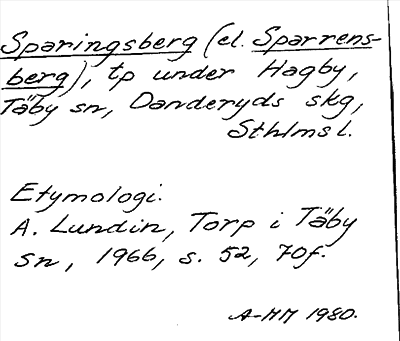 Sparingsberg (el. Sparrens-
berg), tp under Hagby,
Täby sn, Danderyds skg,
Sthlms l.
Etymologi.
A. Lundin, Torp i Täby
sn, 1966, s. 52, 70f.
A-MM 1980.